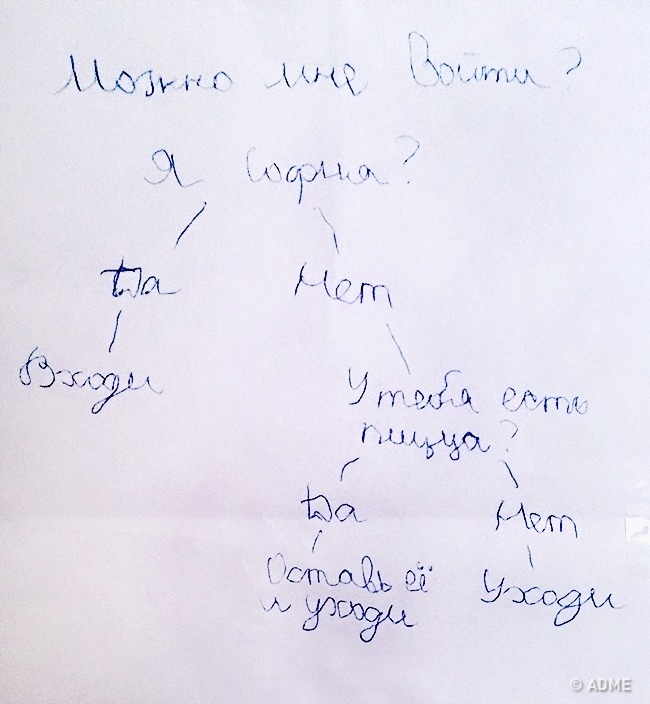 Можно мне Войти?
Я София?
Да Нет
Входи
У тебя есть
пицца?
Да Нет
Оставь её
и уходи
Уходи
© ADME